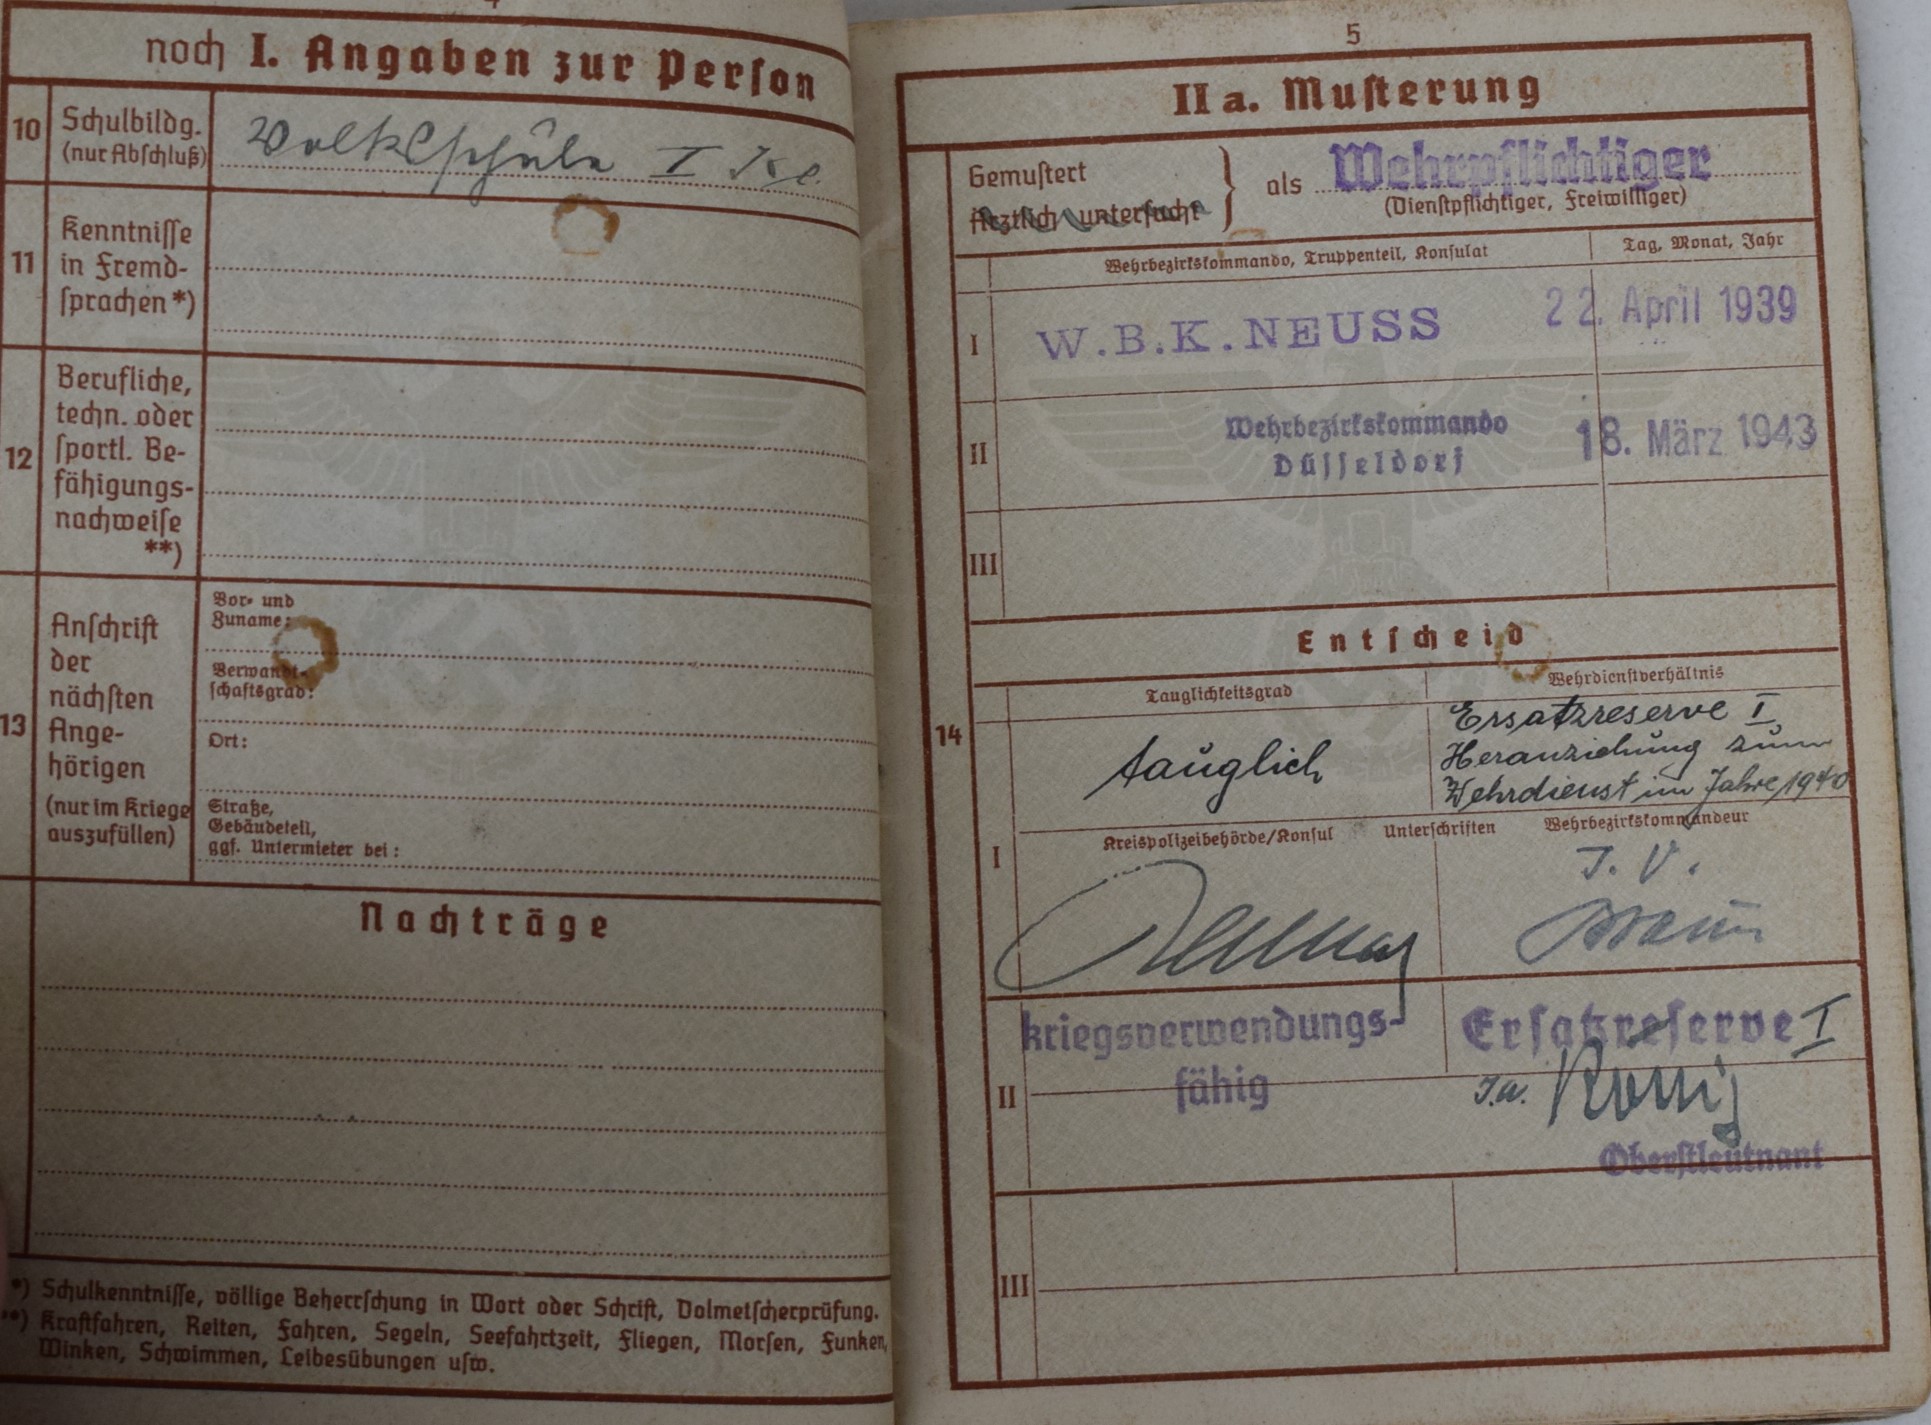 noch I. Angaben zur Person
10
Schulbildg.
(nur Abschluß)
Volksschule I Kl.
11
Kenntnisse
in Fremd-
sprachen *)
12
Berufliche,
techn. oder
sportl. Be-
fähigungs-
nachweise
**)
13
Anschrift
der
nächsten
Ange-
hörigen
(nur im Kriege
auszufüllen)
Vor- und
Zuname:
Verwandt-
schaftsgrad:
Ort:
Straße,
Gebäudeteil,
ggf. Untermieter bei:
Nachträge
*) Schulkenntnisse, völlige Beherrschung in Wort oder Schrift, Dolmetscherprüfung.
**) Kraftfahren, Reiten, Fahren, Segeln, Seefahrtzeit, Fliegen, Morsen, Funken,
Winken, Schwimmen, Leibesübungen usw.
5
II a. Musterung
Gemustert
Ärztlich untersucht
als Wehrpflichtiger
(Dienstpflichtiger, Freiwilliger)
Wehrbezirkskommando, Truppenteil, Konsulat
Tag, Monat, Jahr
I
W.B.K. NEUSS
22. April 1939
II
Wehrbezirkskommando
Düsseldorf
18. März 1943
III
Entscheid
14
Tauglichkeitsgrad
Wehrdienstverhältnis
I
tauglich
Ersatzreserve I,
Heranziehung zum
Wehrdienst im Jahre 1940
Kreispolizeibehörde/Konsul
Unterschriften
Wehrbezirkskommandeur
J. V.
Braun
II
kriegsverwendungs-
fähig
Ersatzreserve I
J.A. König
Oberstleutnant
III